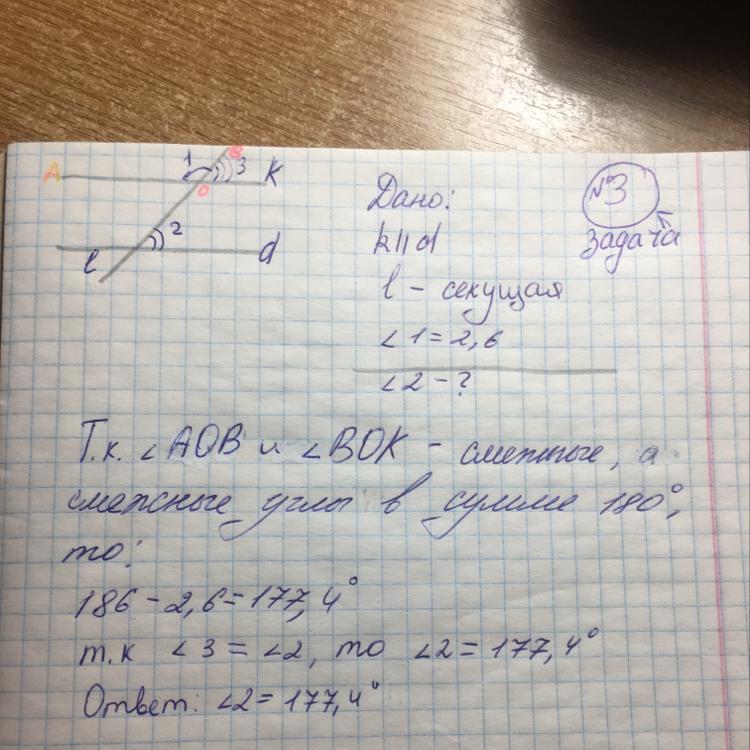 1 B 3
A O K
2
l d
№3
задача
Дано:
k || d
l - секущая
∠1 = 2,6
∠2 - ?
Т.к. ∠AOB и ∠BOK - смежные, а
смежные углы в сумме 180°,
то:
186 - 2,6 = 177,4°
т.к ∠3 = ∠2, то ∠2 = 177,4°
Ответ: ∠2 = 177,4°